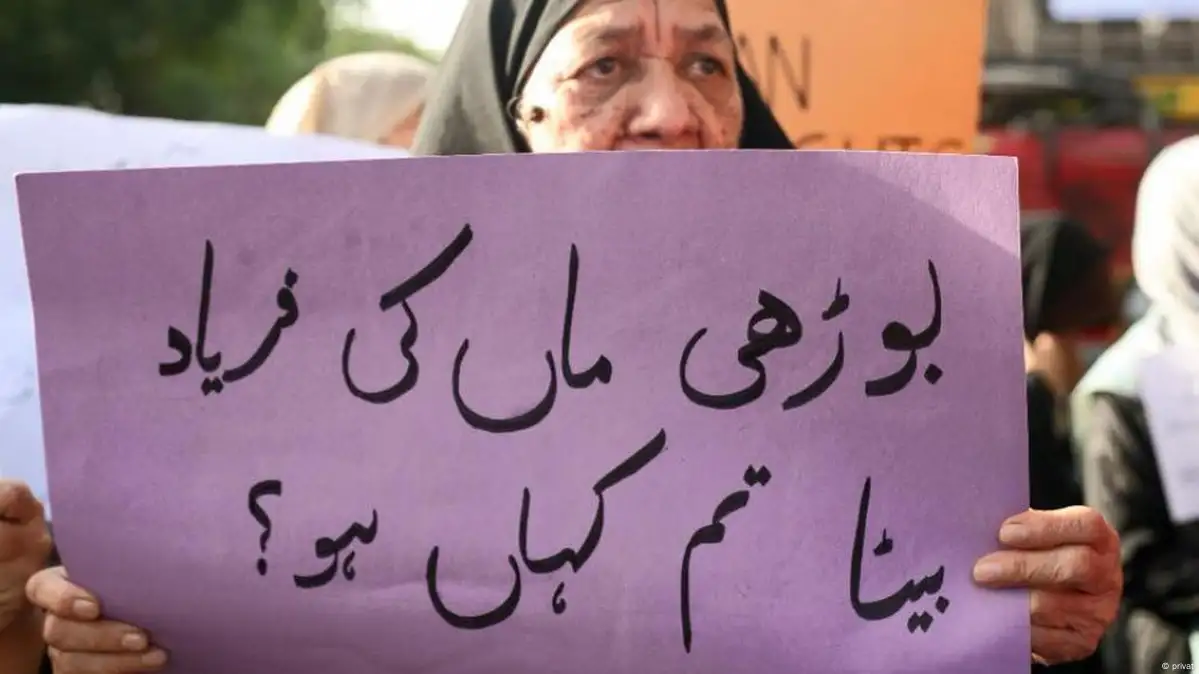 AN
بوڑھی ماں کی فریاد
بیٹا تم کہاں ہو؟
© privat